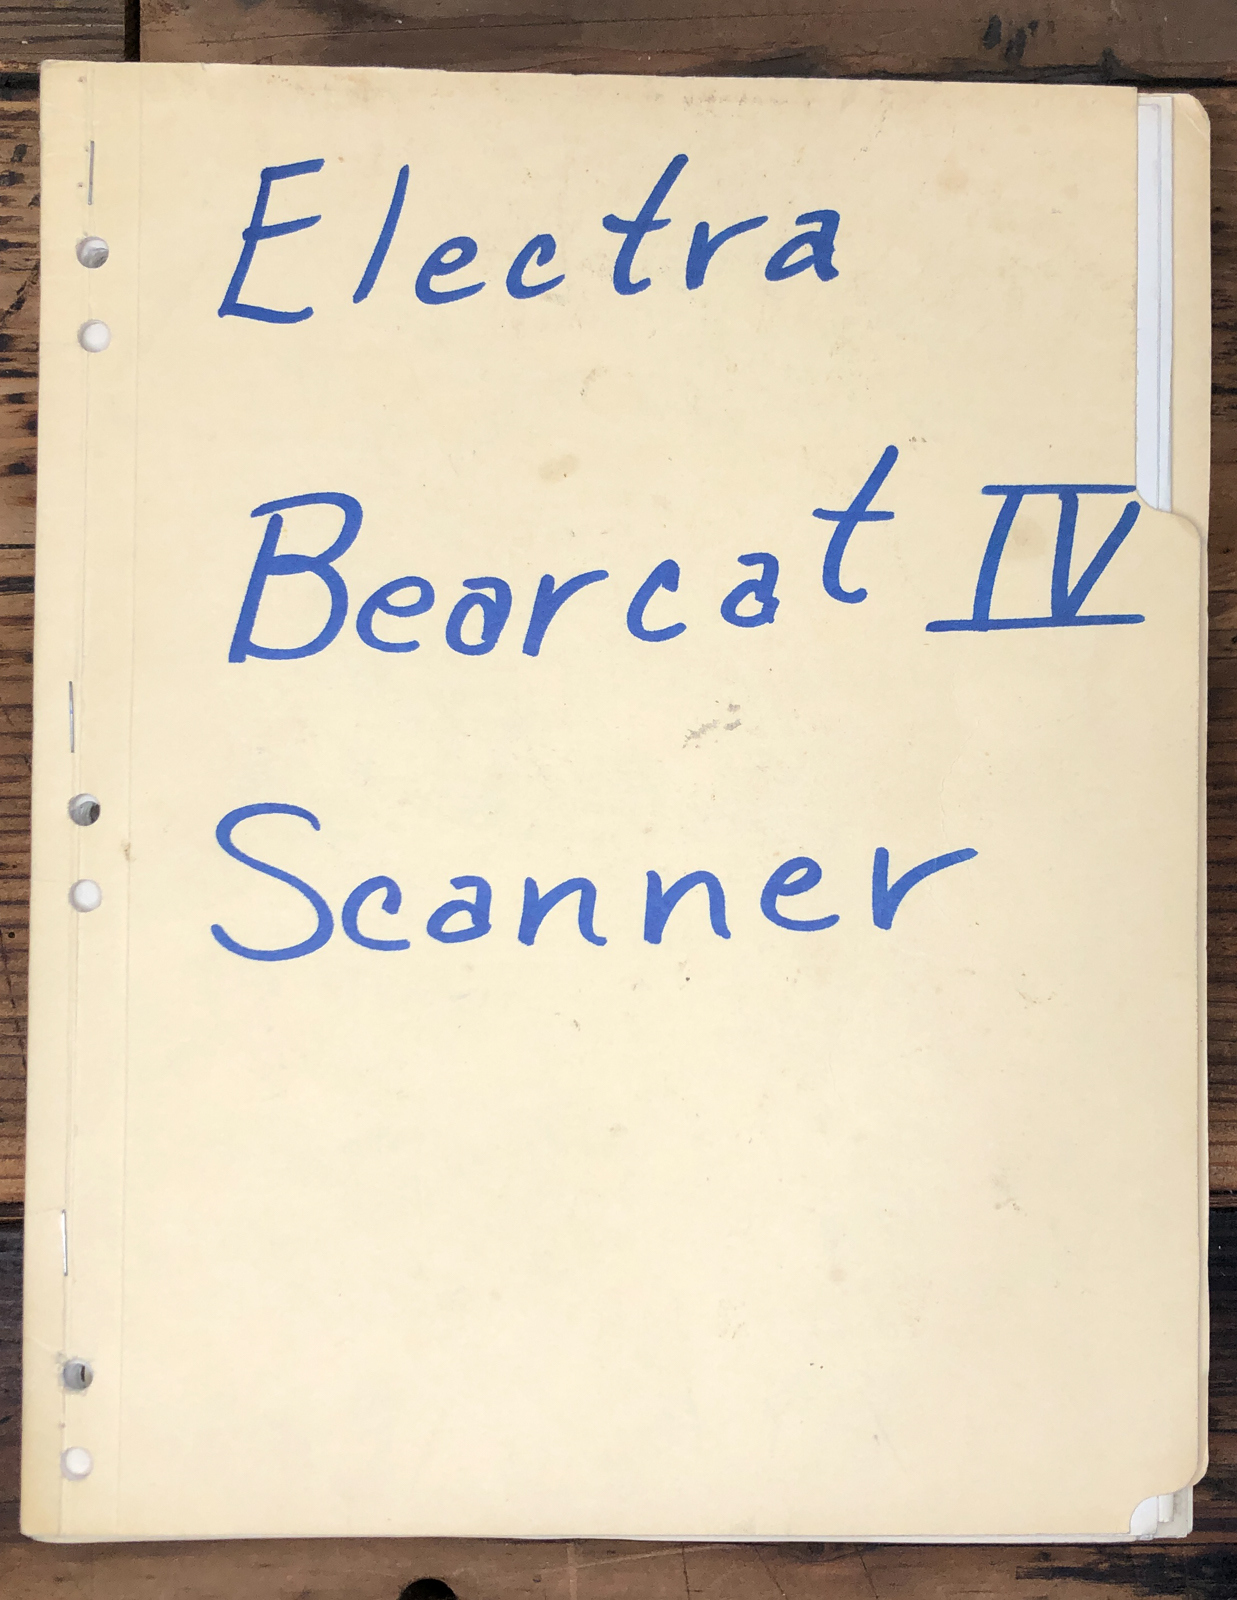 Electra
Bearcat IV
Scanner